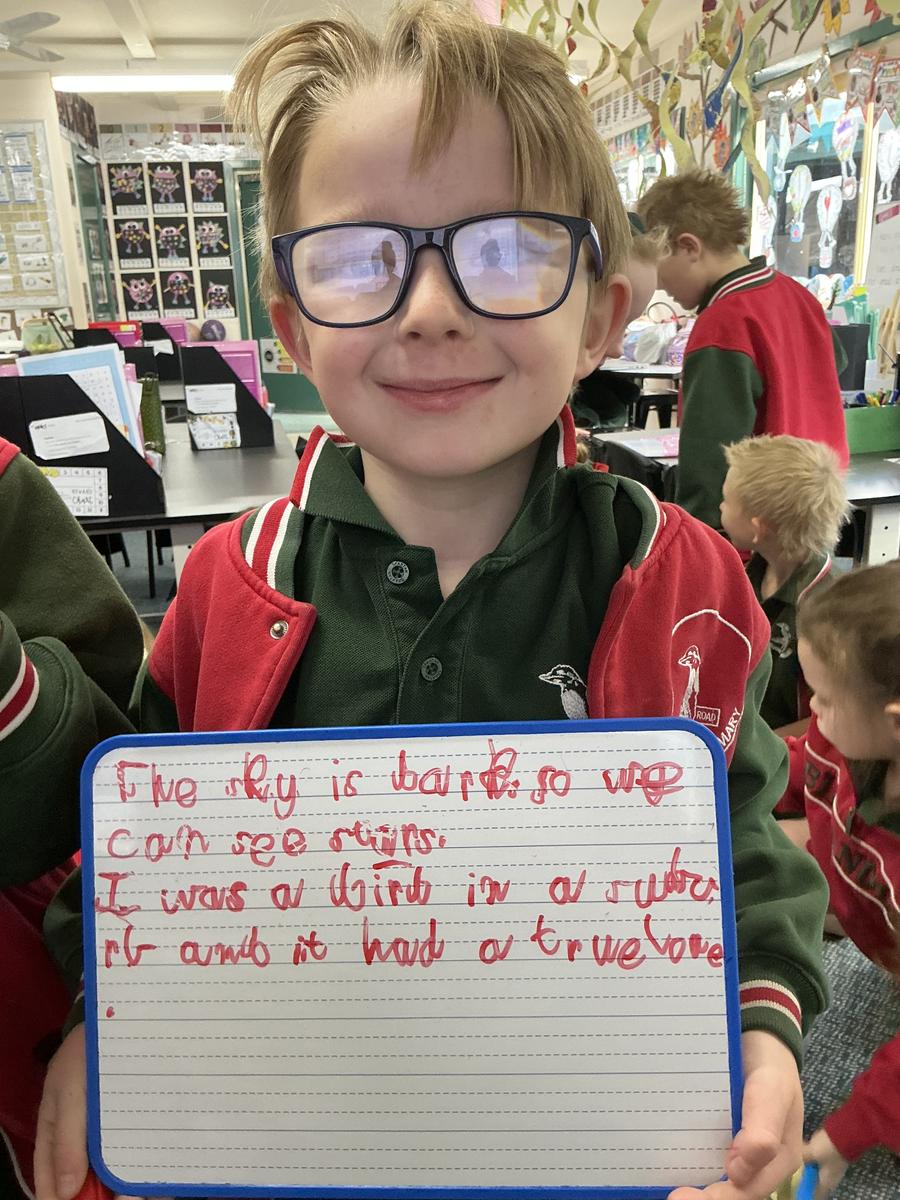 The sky is bark. so we
can see stars.
I was a birb in a
anb it had a true love
.
ROAD
MARY